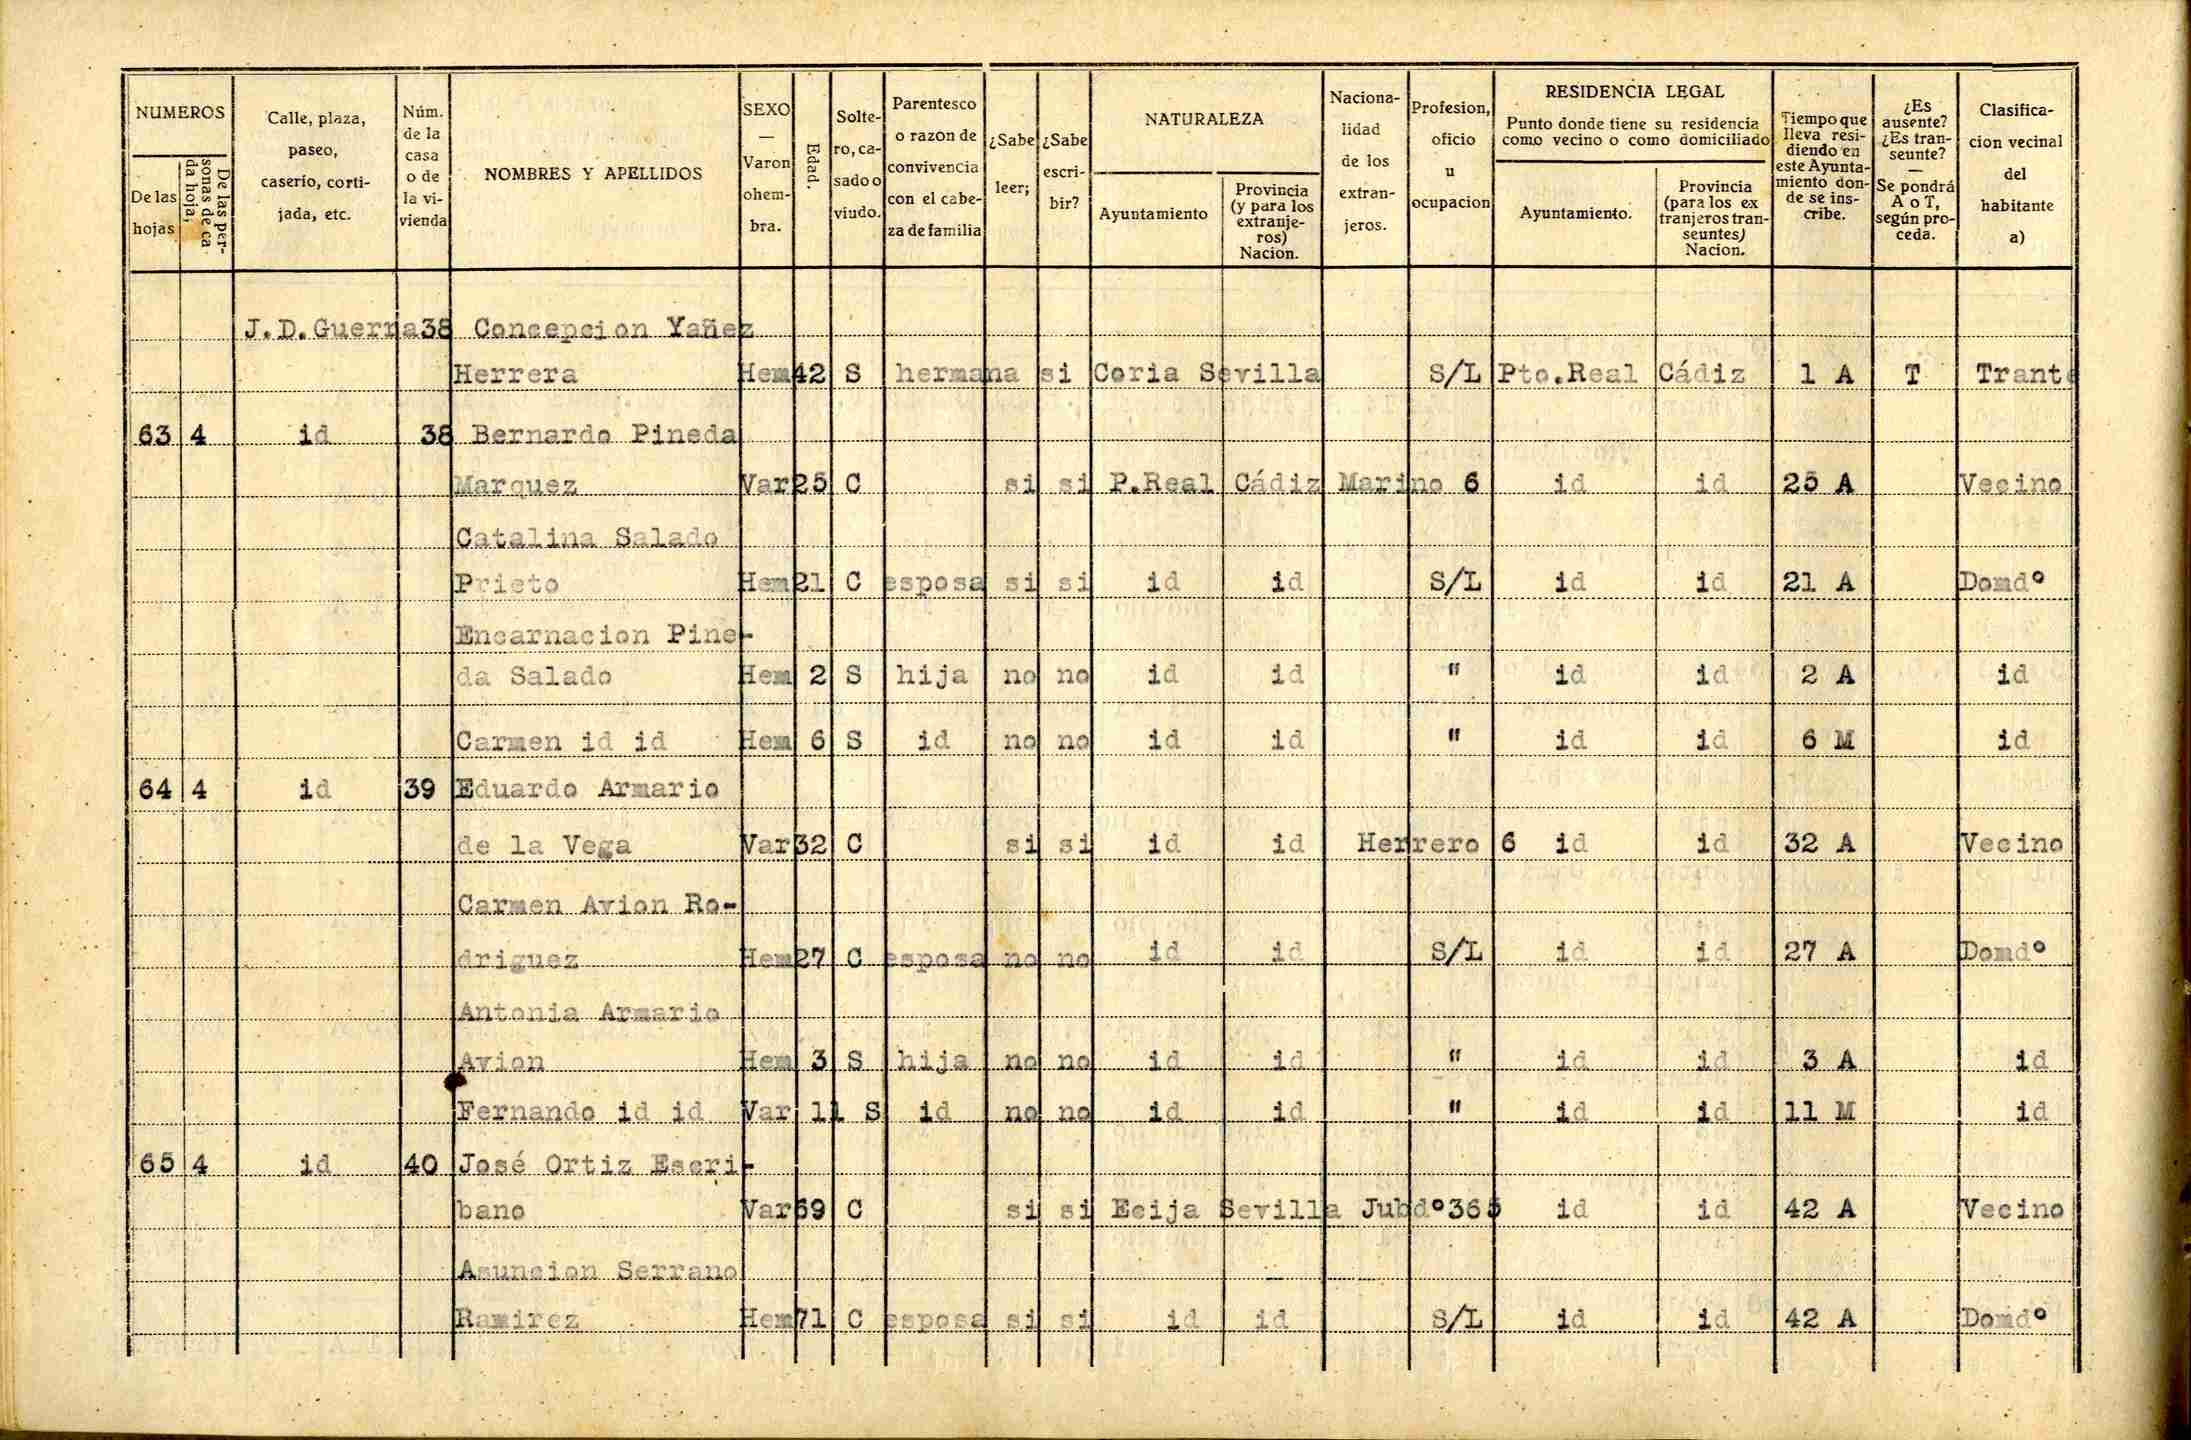 NUMEROS
De las hojas
De las personas de cada hoja;
Calle, plaza, paseo, caserio, cortijada, etc.
Núm. de la casa o de la vivienda
NOMBRES Y APELLIDOS
SEXO — Varon ohembra.
Edad.
Soltero, casado o viudo.
Parentesco o razon de convivencia con el cabeza de familia
¿Sabe leer;
¿Sabe escribir?
NATURALEZA
Ayuntamiento
Provincia (y para los extranjeros) Nacion.
Nacionalidad de los extranjeros.
Profesion, oficio u ocupacion
RESIDENCIA LEGAL
Punto donde tiene su residencia como vecino o como domiciliado
Ayuntamiento.
Provincia (para los extranjeros transeuntes) Nacion.
Tiempo que lleva residiendo en este Ayuntamiento donde se inscribe.
¿Es ausente? ¿Es transeunte? — Se pondrá A o T, según proceda.
Clasificacion vecinal del habitante a)
J.D.Guerra 38 Concepcion Yañez
Herrera Hem 42 S hermana si Coria Sevilla S/L Pto.Real Cádiz 1 A T Trante
63 4 id 38 Bernardo Pineda
Marquez Var 25 C si si P.Real Cádiz Marino 6 id id 25 A Vecino
Catalina Salado
Prieto Hem 21 C esposa si si id id S/L id id 21 A Domdº
Encarnacion Pine-
da Salado Hem 2 S hija no no id id " id id 2 A id
Carmen id id Hem 6 S id no no id id " id id 6 M id
64 4 id 39 Eduardo Armario
de la Vega Var 32 C si si id id Herrero 6 id id 32 A Vecino
Carmen Avion Ro-
driguez Hem 27 C esposa no no id id S/L id id 27 A Domdº
Antonia Armario
Avion Hem 3 S hija no no id id " id id 3 A id
Fernando id id Var 11 S id no no id id " id id 11 M id
65 4 id 40 José Ortiz Escri-
bano Var 69 C si si Ecija Sevilla Jubdº 365 id id 42 A Vecino
Asuncion Serrano
Ramirez Hem 71 C esposa si si id id S/L id id 42 A Domdº